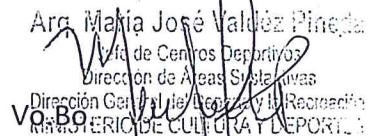 Arq. María José Valdéz Pineda
Jefa de Centros Deportivos
Dirección de Áreas Sustantivas
Dirección General del Deporte y la Recreación
Vo.Bo.
MINISTERIO DE CULTURA Y DEPORTES